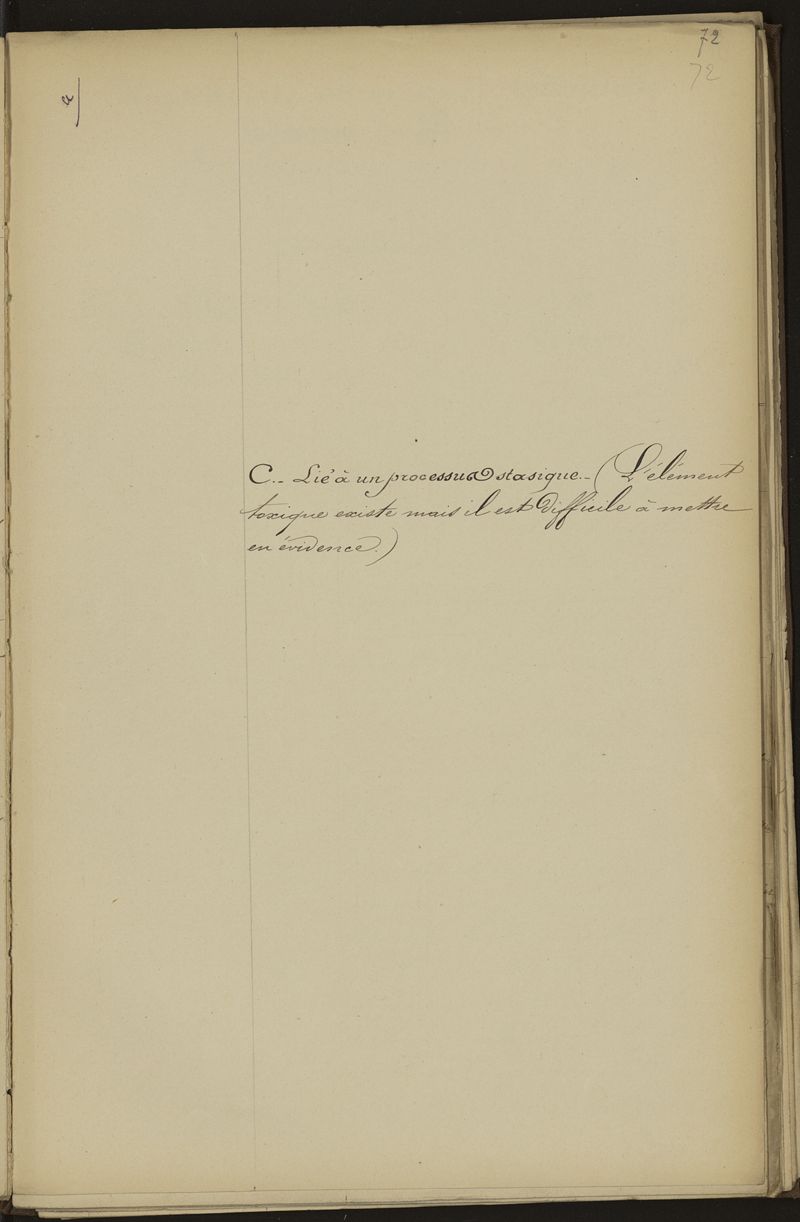 72
72
a
C.- Lié à un processus stasique.- (L'élément
toxique existe mais il est difficile à mettre
en évidence.)